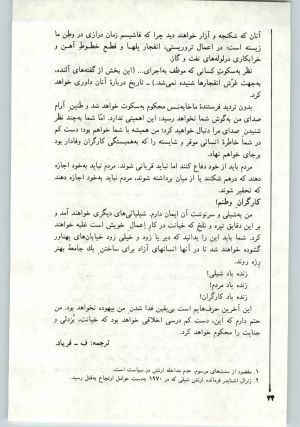 آنان که شکنجه و آزار خواهند دید چرا که فاشیسم زمان درازی در وطن ما
زیسته است؛ در اعمال تروریستی، انفجار پلها و قطع خطوط آهن و
خرابکاری درلوله‌های نفت و گاز
نظر به‌سکوت کسانی که موظف به‌اجرای... (این بخش از گفته‌های آلنده،
به‌جهت غرّش انفجارها شنیده نمی‌شد.) ـ تاریخ دربارهٔ آنان داوری خواهد
کرد.
بدون تردید فرستندهٔ ماخابه‌نس محکوم به‌سکوت خواهد شد و طنین آرام
صدای من به‌گوش شما نخواهد رسید: این اهمیتی ندارد. امّا شما به‌چند نظر
شنیدن صدای مرا دنبال خواهید کرد: من همیشه با شما خواهم بود؛ دست کم
در شما خاطرهٔ انسانی موقر و شایسته را که به‌همبستگی کارگران وفادار بود
برجای خواهم نهاد.
مردم باید از خود دفاع کنند اما نباید قربانی شوند. مردم نباید به‌خود اجازه
دهند که درهم شکنند یا از میان بروند، مردم نباید به‌خود اجازه دهند
که تحقیر شوند.
کارگران وطنم!
من به‌شیلی و سرنوشت آن ایمان دارم. شیلیائی‌های دیگری خواهند آمد و
بر این دقایق تیره و تلخ که خیانت در کارِ إعمال خویش است غلبه خواهند
کرد. شما باید این را بدانید که دیر یا زود و خیلی زود خیابان‌های پهناور
گشوده خواهند شد تا در آنها انسانهای آزاد برای ساختن یک جامعهٔ بهتر
رژه روند.
زنده باد شیلی!
زنده باد مردم!
زنده باد کارگران!
این آخرین حرف‌هایم است بی‌یقین فدا شدن من بیهوده نخواهد بود.
من یقین دارم که دست کم درسی اخلاقی خواهد بود که خیانت، بُزدلی و
جنایت را محکوم خواهد کرد.
ترجمه: ف ـ فریاد.
۱. مقصود از سنت‌های مرسوم، عدم مداخله ارتش در سیاست است.
۲. ژنرال اشنایدر فرمانده ارتش شیلی که در ۱۹۷۰ به‌دست عوامل ارتجاع به‌قتل رسید.